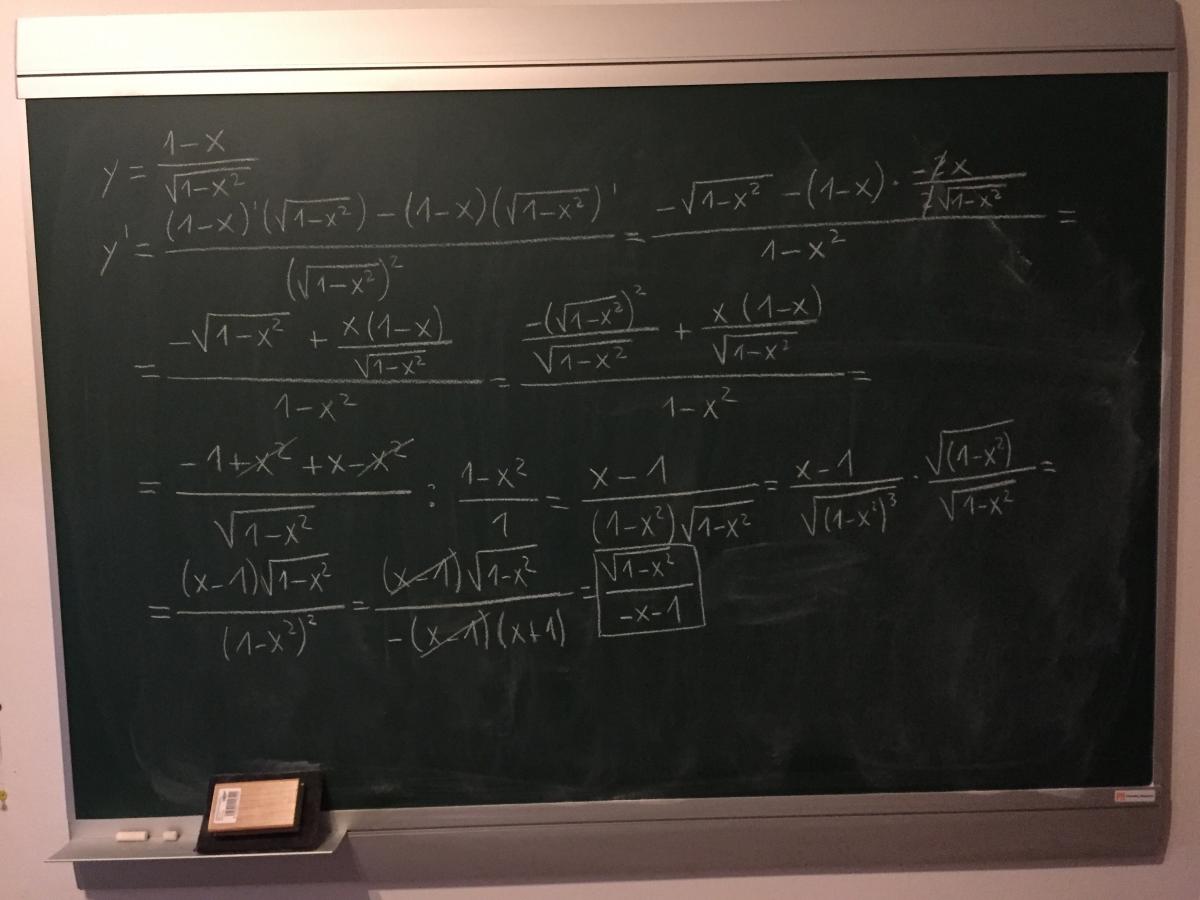 y = (1-x)/(√(1-x²))
y' = ((1-x)'(√(1-x²)) - (1-x)(√(1-x²))')/((√(1-x²))²) = (-√(1-x²) - (1-x)·(-2x)/(2√(1-x²)))/(1-x²) =
= (-√(1-x²) + (x(1-x))/(√(1-x²)))/(1-x²) = ((-(√(1-x²))²)/(√(1-x²)) + (x(1-x))/(√(1-x²)))/(1-x²) =
= (-1+x²+x-x²)/(√(1-x²)) : (1-x²)/1 = (x-1)/((1-x²)√(1-x²)) = (x-1)/(√((1-x²)³)) · (√((1-x²)))/(√(1-x²)) =
= ((x-1)√(1-x²))/((1-x²)²) = ((x-1)√(1-x²))/(-(x-1)(x+1)) = (√(1-x²))/(-x-1)